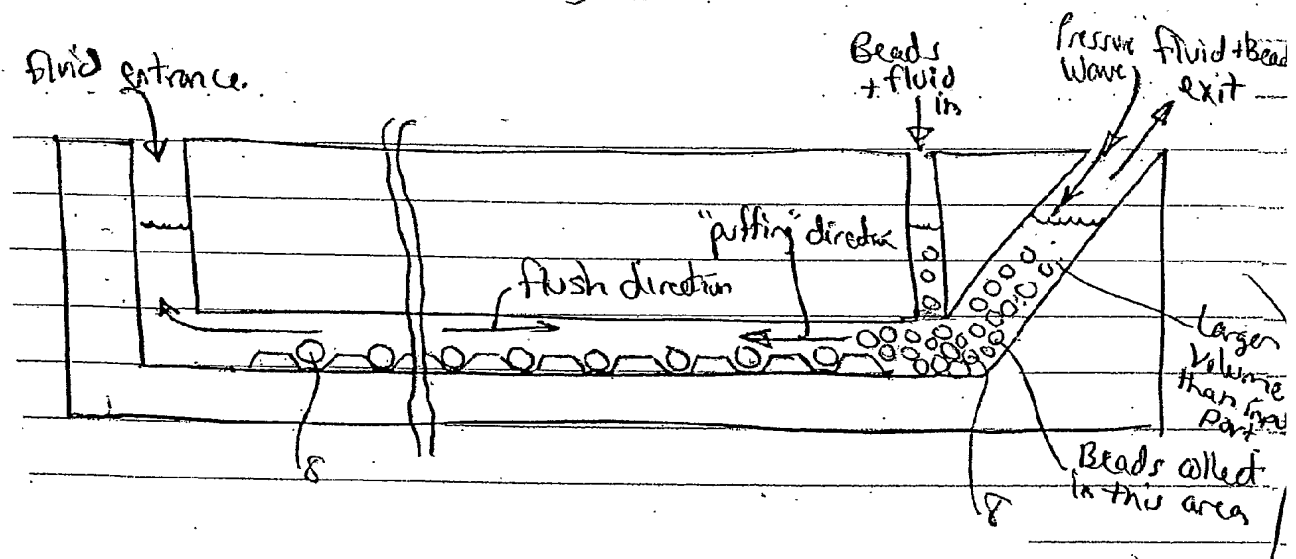 fluid entrance.
Beads
+ fluid
in
Pressure
Wave
fluid + Bead
exit
"puffing" direction
flush direction
Larger
Volume
than input
Port
8
8
Beads collect
in this area